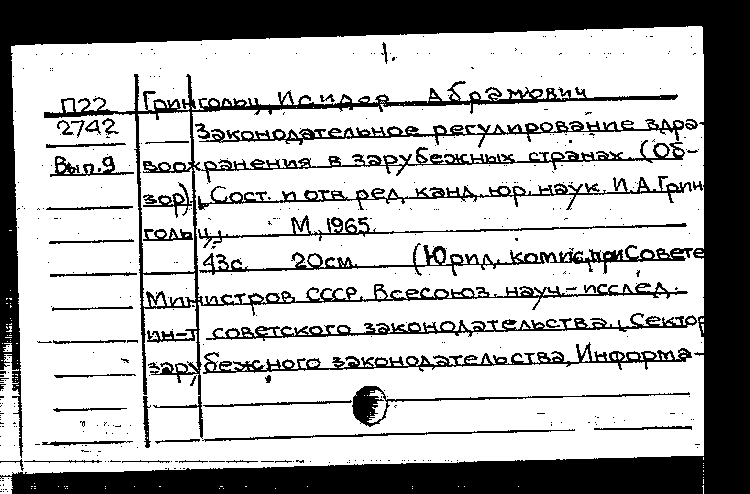 1.
П22 Грингольц, Исидор Абрамович
2742 Законодательное регулирование здра-
Вып.9 воохранения в зарубежных странах. (Об-
зор). Сост. и отв. ред. канд. юр. наук. И.А. Грин-
гольц.
М., 1965.
43с. 20см. (Юрид. комис. при Совете
Министров СССР. Всесоюз. науч.-исслед.
ин-т советского законодательства. Сектор
зарубежного законодательства, Информа-